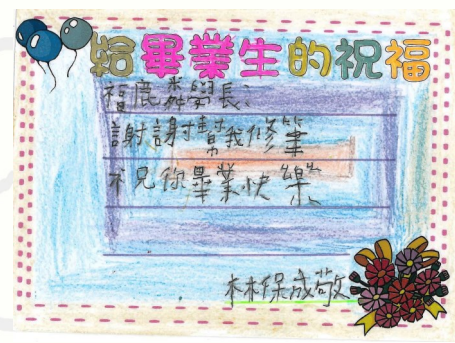 給畢業生的祝福
森學長:
謝謝幫我修筆
祝你畢業快樂
林保成敬